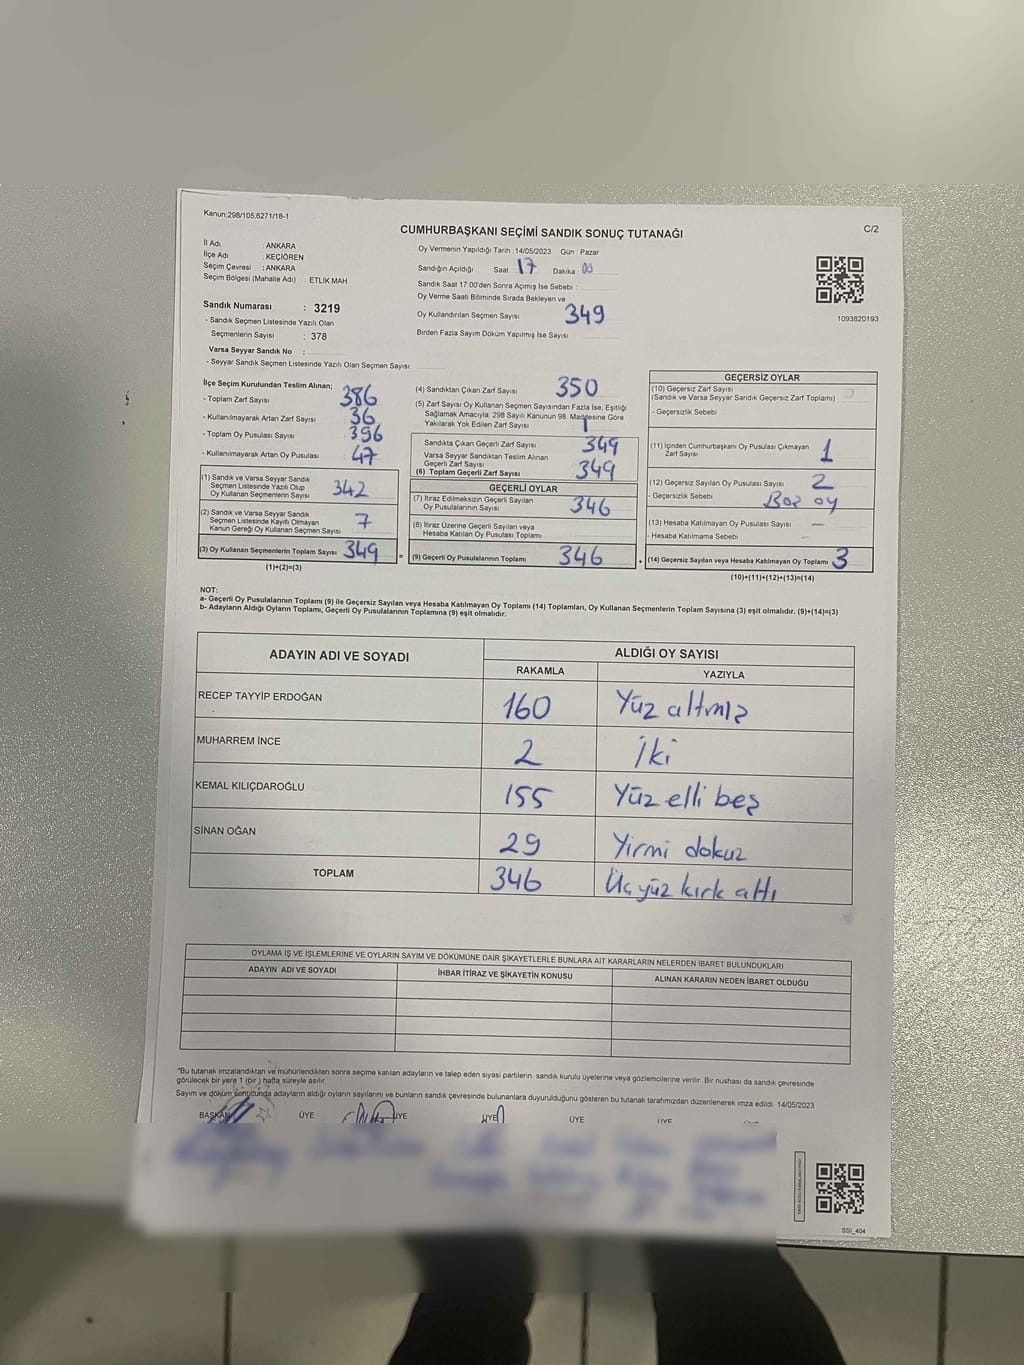 Kanun:298/105,6271/18-1
C/2
CUMHURBAŞKANI SEÇİMİ SANDIK SONUÇ TUTANAĞI
İl Adı : ANKARA
İlçe Adı : KEÇİÖREN
Seçim Çevresi : ANKARA
Seçim Bölgesi (Mahalle Adı) : ETLİK MAH
Sandık Numarası : 3219
- Sandık Seçmen Listesinde Yazılı Olan
Seçmenlerin Sayısı : 378
Varsa Seyyar Sandık No :
- Seyyar Sandık Seçmen Listesinde Yazılı Olan Seçmen Sayısı:
Oy Vermenin Yapıldığı Tarih :14/05/2023 Gün Pazar
Sandığın Açıldığı Saat 17 Dakika 00
Sandık Saat 17:00'den Sonra Açımış İse Sebebi :
Oy Verme Saati Bitiminde Sırada Bekleyen ve
Oy Kullandırılan Seçmen Sayısı 349
Birden Fazla Sayım Döküm Yapılmış İse Sayısı
1093820193
İlçe Seçim Kurulundan Teslim Alınan;
- Toplam Zarf Sayısı 386
- Kullanılmayarak Artan Zarf Sayısı 36
- Toplam Oy Pusulası Sayısı 396
- Kullanılmayarak Artan Oy Pusulası 47
(1) Sandık ve Varsa Seyyar Sandık
Seçmen Listesinde Yazılı Olup
Oy Kullanan Seçmenlerin Sayısı 342
(2) Sandık ve Varsa Seyyar Sandık
Seçmen Listesinde Kayıtlı Olmayan
Kanun Gereği Oy Kullanan Seçmen Sayısı 7
(3) Oy Kullanan Seçmenlerin Toplam Sayısı 349
(1)+(2)=(3)
(4) Sandıktan Çıkan Zarf Sayısı 350
(5) Zarf Sayısı Oy Kullanan Seçmen Sayısından Fazla İse, Eşitliği
Sağlamak Amacıyla; 298 Sayılı Kanunun 98. Maddesine Göre
Yakılarak Yok Edilen Zarf Sayısı 1
Sandıkta Çıkan Geçerli Zarf Sayısı 349
Varsa Seyyar Sandıktan Teslim Alınan
Geçerli Zarf Sayısı
(6) Toplam Geçerli Zarf Sayısı 349
GEÇERLİ OYLAR
(7) İtiraz Edilmeksizin Geçerli Sayılan
Oy Pusulasının Sayısı 346
(8) İtiraz Üzerine Geçerli Sayılan veya
Hesaba Katılan Oy Pusulası Toplamı
= (9) Geçerli Oy Pusulalarının Toplamı 346
GEÇERSİZ OYLAR
(10) Geçersiz Zarf Sayısı
(Sandık ve Varsa Seyyar Sandık Geçersiz Zarf Toplamı)
- Geçersizlik Sebebi
(11) İçinden Cumhurbaşkanı Oy Pusulası Çıkmayan
Zarf Sayısı 1
(12) Geçersiz Sayılan Oy Pusulası Sayısı 2
- Geçersizlik Sebebi Boz oy
(13) Hesaba Katılmayan Oy Pusulası Sayısı –
- Hesaba Katılmama Sebebi –
+ (14) Geçersiz Sayılan veya Hesaba Katılmayan Oy Toplamı 3
(10)+(11)+(12)+(13)=(14)
NOT:
a- Geçerli Oy Pusulalarının Toplamı (9) ile Geçersiz Sayılan veya Hesaba Katılmayan Oy Toplamı (14) Toplamları, Oy Kullanan Seçmenlerin Toplam Sayısına (3) eşit olmalıdır. (9)+(14)=(3)
b- Adayların Aldığı Oyların Toplamı, Geçerli Oy Pusulalarının Toplamına (9) eşit olmalıdır.
ADAYIN ADI VE SOYADI
ALDIĞI OY SAYISI
RAKAMLA YAZIYLA
RECEP TAYYİP ERDOĞAN 160 Yüz altmış
MUHARREM İNCE 2 İki
KEMAL KILIÇDAROĞLU 155 Yüz elli beş
SİNAN OĞAN 29 Yirmi dokuz
TOPLAM 346 Üç yüz kırk altı
OYLAMA İŞ VE İŞLEMLERİNE VE OYLARIN SAYIM VE DÖKÜMÜNE DAİR ŞİKAYETLERLE BUNLARA AİT KARARLARIN NELERDEN İBARET BULUNDUKLARI
ADAYIN ADI VE SOYADI İHBAR İTİRAZ VE ŞİKAYETİN KONUSU ALINAN KARARIN NEDEN İBARET OLDUĞU
*Bu tutanak imzalandıktan ve mühürlendikten sonra seçime katılan adayların ve talep eden siyasi partilerin sandık kurulu üyelerine veya gözlemcilerine verilir. Bir nüshası da sandık çevresinde
görülecek bir yere 1 (bir) hafta süreyle asılır.
Sayım ve döküm sonucunda adayların aldığı oyların sayılarını ve bunların sandık çevresinde bulunanlara duyurulduğunu gösteren bu tutanak tarafımızdan düzenlenerek imza edildi. 14/05/2023
BAŞKAN ÜYE ÜYE ÜYE ÜYE ÜYE
SSİ_404